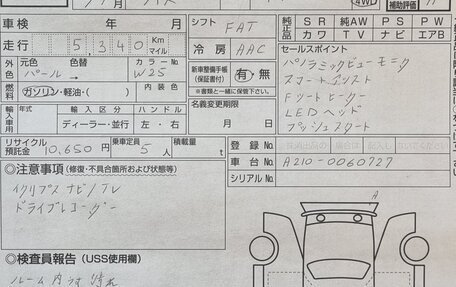 車検 年 月
シフト FAT
純正品 SR 純AW PS PW
カワ TV ナビ エアB
走行 5,340 Km マイル
冷房 AAC
セールスポイント
外色 元色 色替 カラーNo
パール→ W25
新車整備手帳(保証書付) 有・無
※書類と一緒に保管下さい。
パノラミックビューモニタ
スマートアシスト
燃料 ガソリン・軽油・( )
Fシートヒーター
輸入車用 年式 輸入区分 ハンドル
ディーラー・並行 左・右
名義変更期限
月 日
LEDヘッド
プッシュスタート
リサイクル預託金 10,650円 乗車定員 5人 積載量 t
登録No.
車台No. A210-0060727
シリアルNo.
◎注意事項(修復・不具合箇所および状態等)
イクリプスナビ/TV
ドライブレコーダー
A
◎検査員報告(USS使用欄)
ルーム内